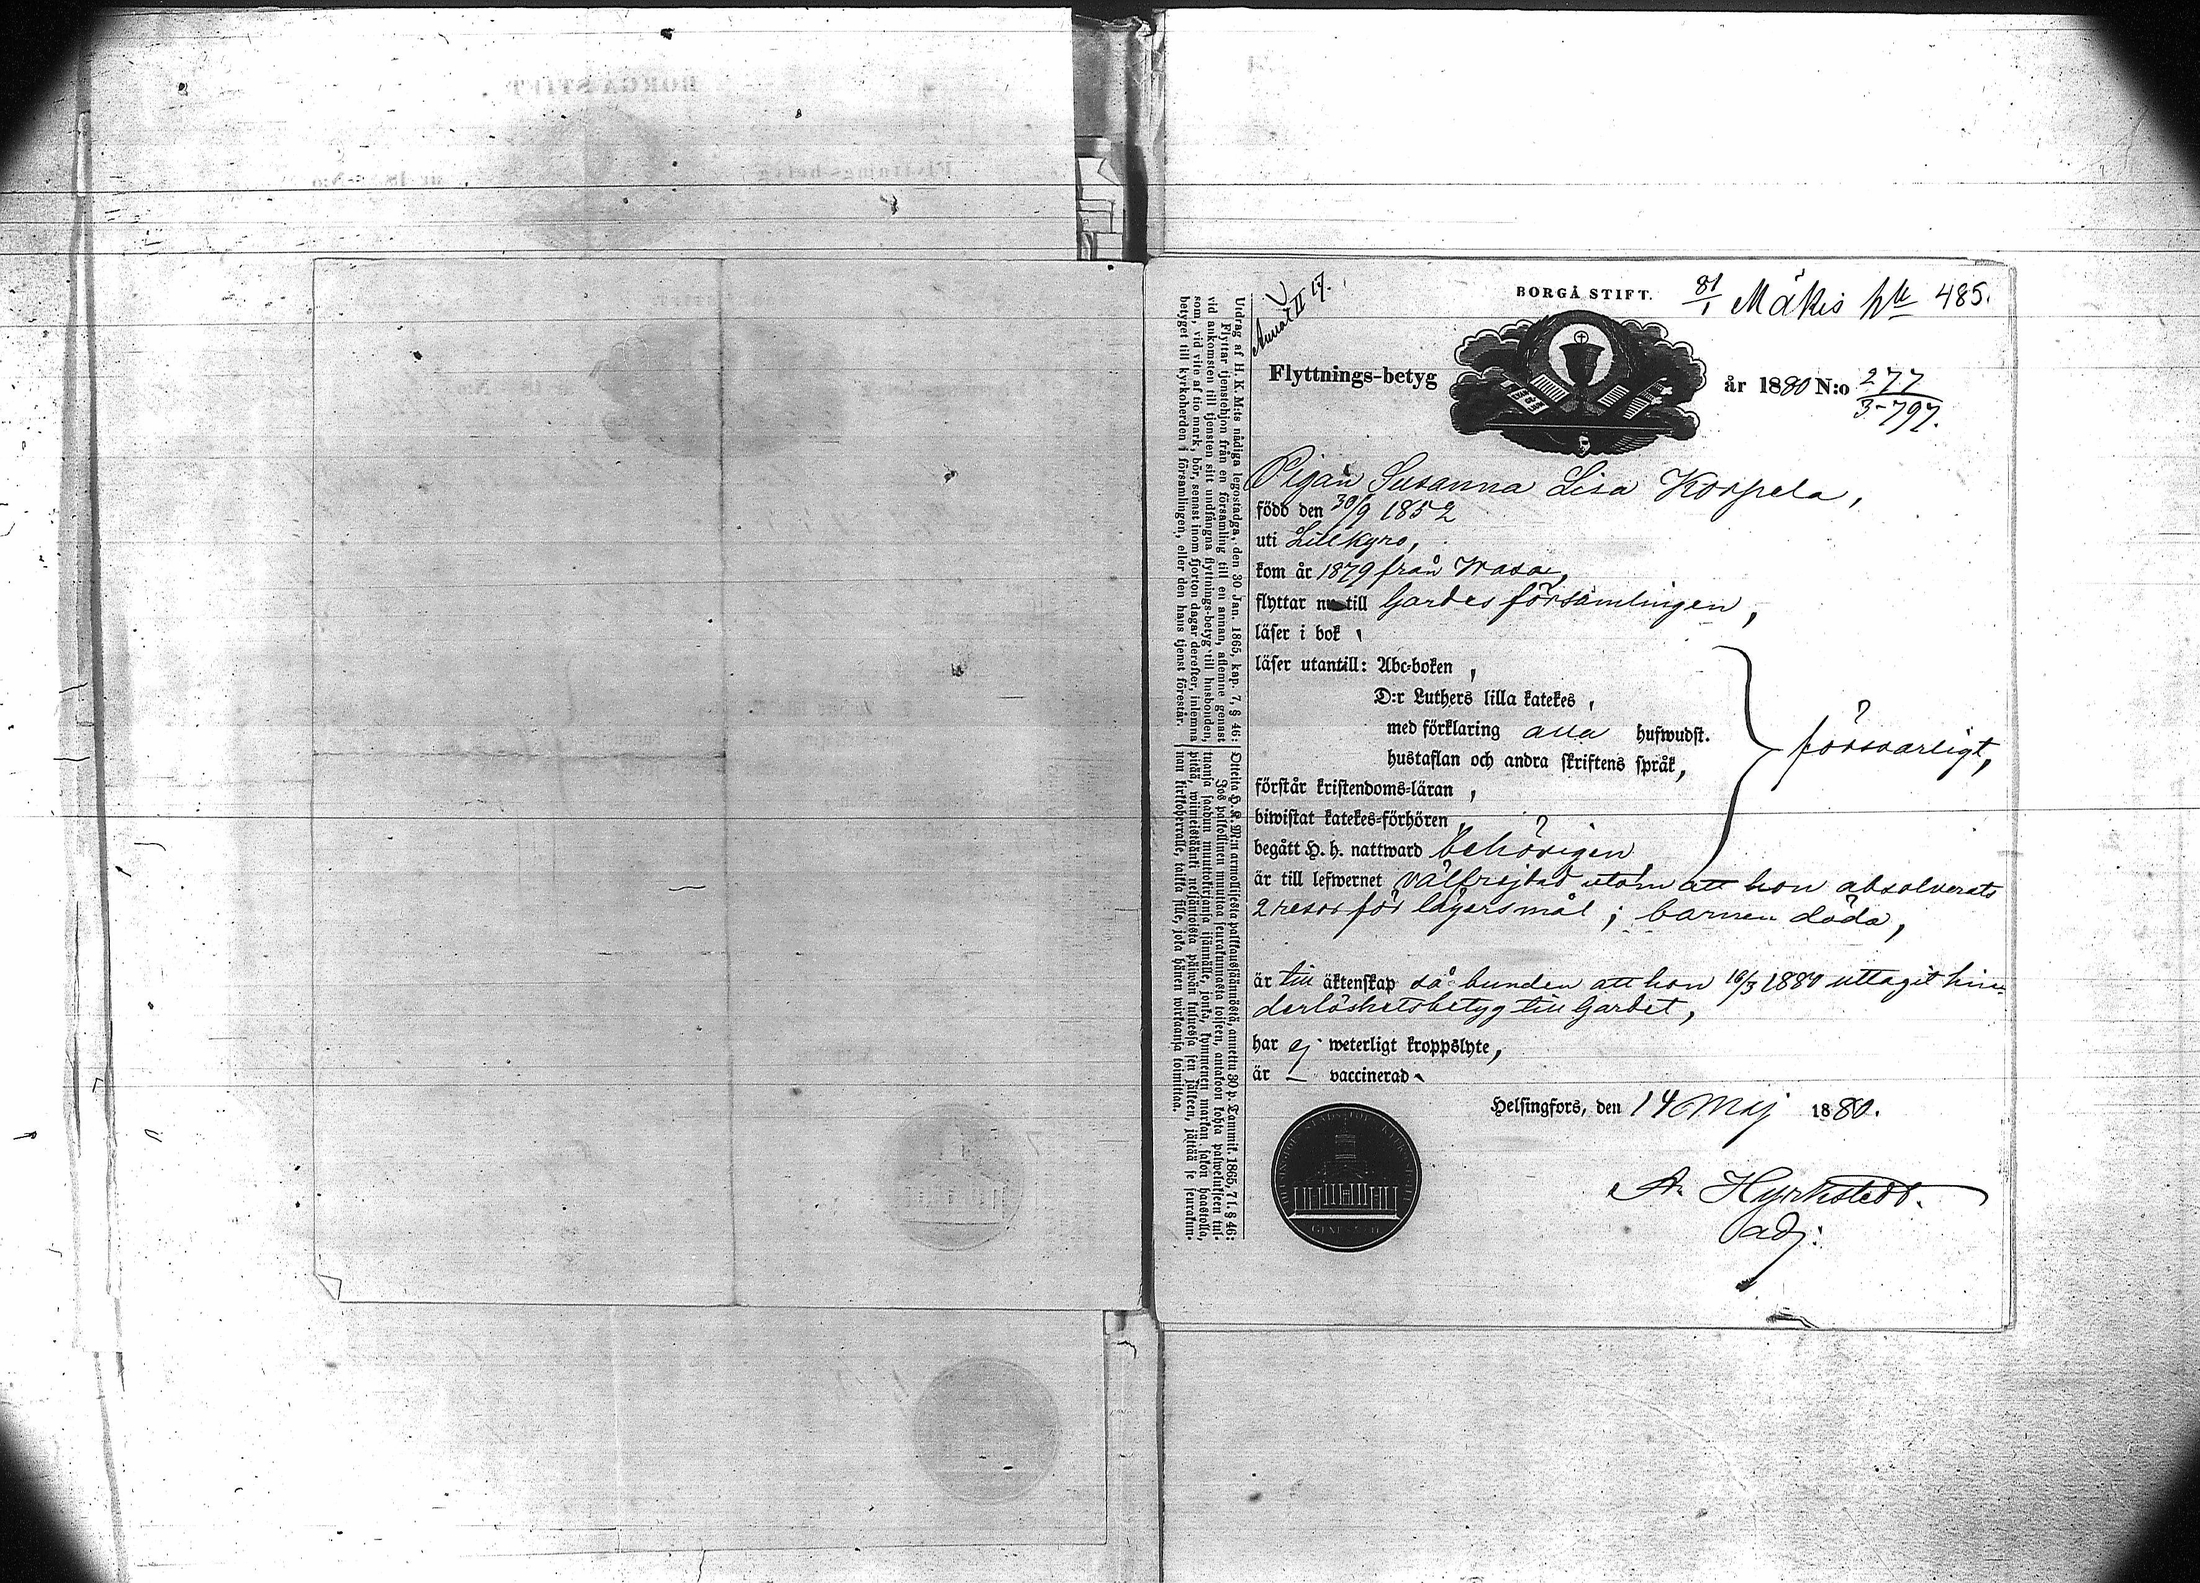 BORGÅ STIFT.
81/1 Mäkis 485.
Annat II 17.
Flyttnings-betyg
år 1880 N:o 277
3-797.
Pigan Susanna Lisa Korpela,
född den 30/9 1852
uti Lillkyro,
kom år 1879 från Wasa,
flyttar nu till Gardesförsamlingen,
läser i bok,
läser utantill: Abc-boken,
D:r Luthers lilla katekes,
med förklaring alla hufwudst.
hustaflan och andra skriftens språk,
förstår kristendoms-läran,
försvarligt,
biwistat katekes-förhören,
begått H. h. nattward behörigen,
är till lefwernet välfrejdad utom att hon absolverats
2 resor för lägersmål; barnen döda,
är till äktenskap så bunden att hon 16/3 1880 uttagit hin-
derlöshetsbetyg till Gardet,
har ej weterligt kroppslyte,
är vaccinerad.
Helsingfors, den 14 Maj 1880.
A. Hyrkstedt.
adj:
Utdrag af H. K. M:ts nådiga legostadga, den 30 Jan. 1865, kap. 7, § 46:
Flyttar tjenstehjon från en församling till en annan, aflemne genast
vid ankomsten till tjensten sitt undfångna flyttnings-betyg till husbonden,
som, vid vite af tio mark, bör, sennast inom fjorton dagar derefter, inlemna
betyget till kyrkoherden i församlingen, eller den hans tjenst förestår.
Otteita H. K. M:n armollisesta palkkaussäännöstä, annettu 30 p. Tammik. 1865, 7 l. § 46:
Jos palkollinen muuttaa seurakunnasta toiseen, antakoon kohta palwelukseen tul-
tuansa saadun muuttokirjansa isännälle, jonka, kymmenen markan sakon haastolla,
pitää, wiimeistäänki neljäntoista päiwän kuluessa sen jälkeen, jättää se seurakun-
nan kirkkoherralle, taikka sille, joka hänen wirkaansa toimittaa.